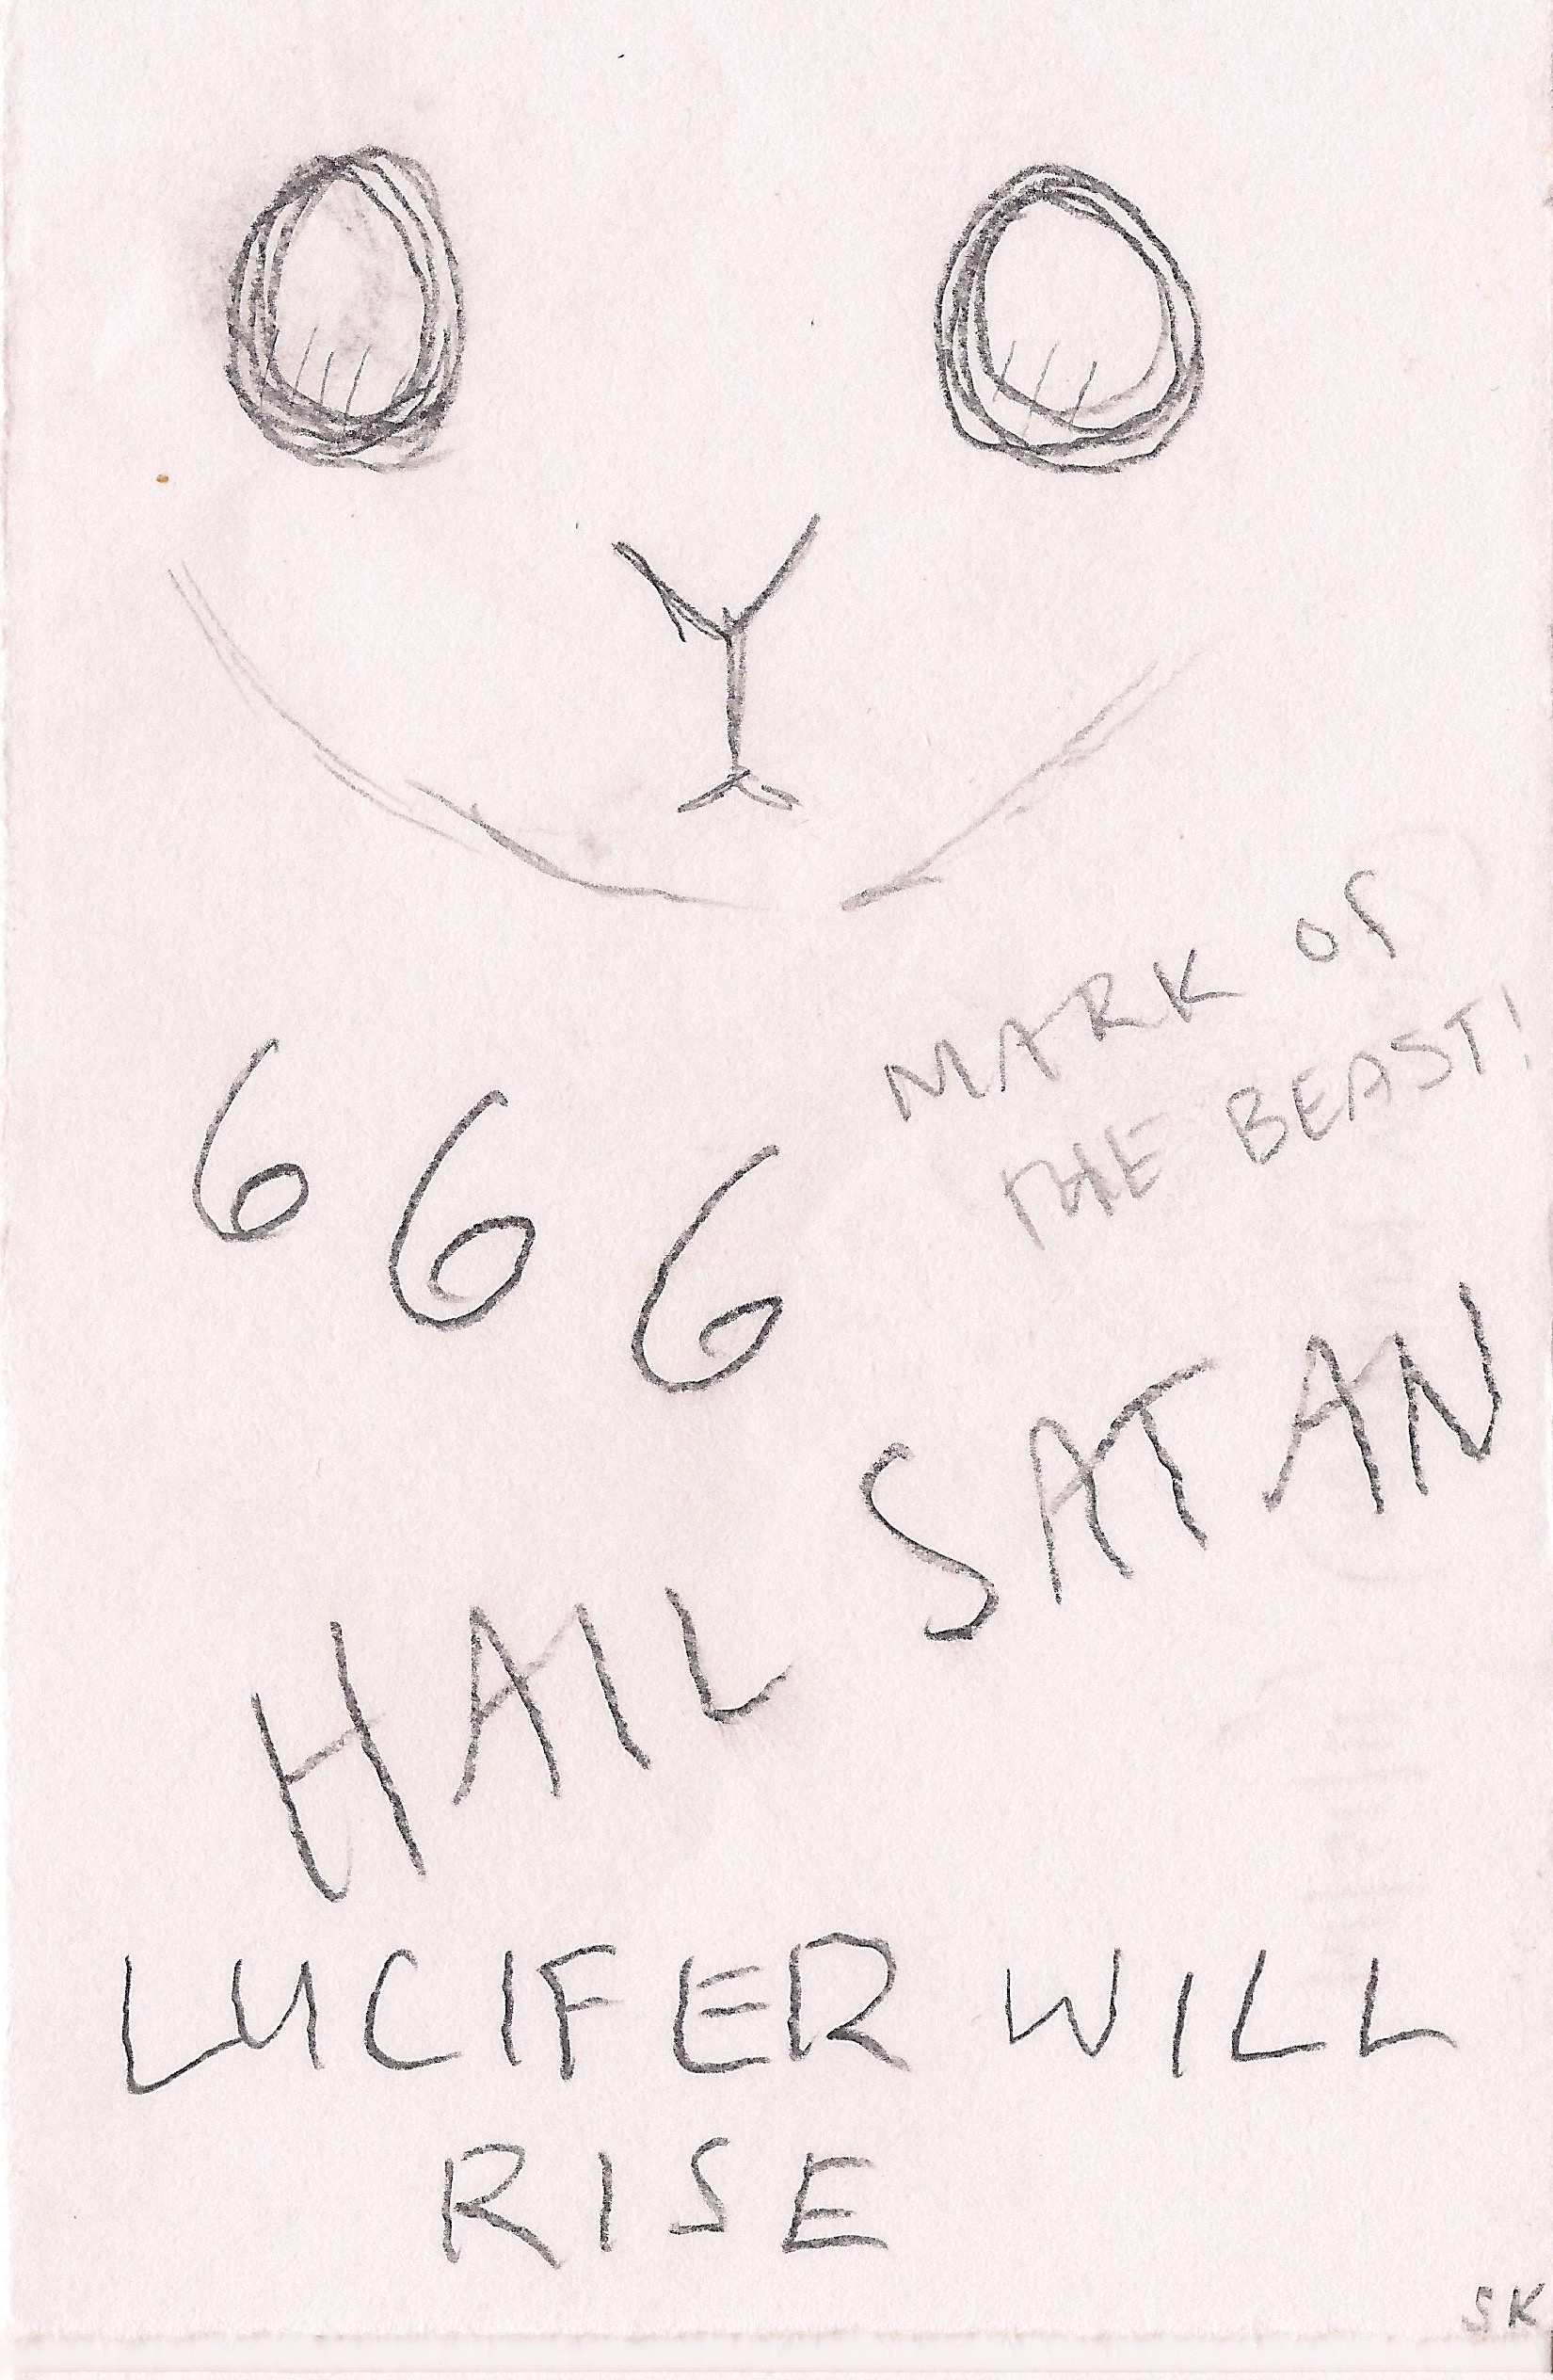 MARK Of
THE BEAST!
666
HAIL SATAN
LUCIFER WILL
RISE
SK